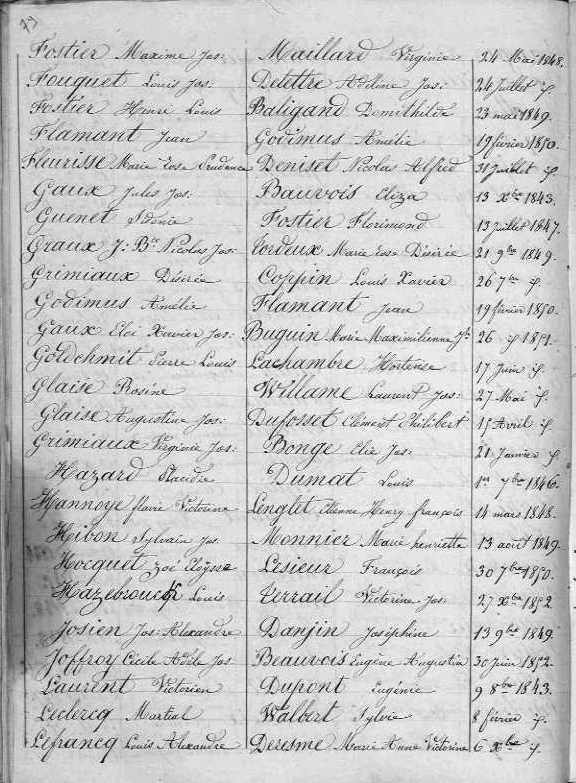 73
Fostier Maxime Jos: Maillard Virginie 24 Mai 1848.
Fouquet Louis Jos: Delettre Adeline Jos: 24 Juillet id.
Fostier Henri Louis Baligand Domithilde 23 mai 1849.
Flamant Jean Godimus Amélie 19 février 1850.
Fleurisse Marie Rose Prudence Deniset Nicolas Alfred 31 Juillet id.
Gaux Jules Jos: Bauvois Eliza 13 Xbre 1843.
Guenet Adonie Fostier Florimond 13 Juillet 1847.
Graux J: Bte Nicolas Jos: Tordeux Marie Rose Désirée 21 9bre 1849.
Grimiaux Désirée Coppin Louis Xavier 26 7bre id.
Godimus Amélie Flamant Jean 19 février 1850.
Gaux Eloi Xavier Jos: Buguin Marie Maximilienne Jh 26 id 1851.
Goldchmit Pierre Louis Lachambre Hortense 17 Juin id.
Glaise Rosine Willame Laurent Jos: 27 Mai id.
Glaise Augustine Jos: Dufosset Clément Philibert 15 Avril id.
Grimiaux Virginie Jos: Bonge Elie Jos: 21 Janvier id.
Hazard Claudre Dumat Louis 1er 7bre 1846.
Hannoye flavie Victorine Lenglet Etienne Henry françois 14 mars 1848.
Hibon Sylvain Jos: Monnier Marie henriette 13 août 1849.
Hocquet Zoé Eloÿsse Lesieur François 30 7bre 1850.
Hazebrouck Louis Terrail Victorine Jos: 27 Xbre 1852.
Josien Jos: Alexandre Danjin Joséphine 13 9bre 1849.
Joffroy Cécile Adèle Jos Beauvois Eugène Augustin 30 Juin 1852.
Laurent Victorien Dupont Eugénie 9 8bre 1843.
Leclercq Martial Walbert Sylvie 8 février id.
Lefrancq Louis Alexandre Deresme Marie Anne Victorine 6 Xbre id.